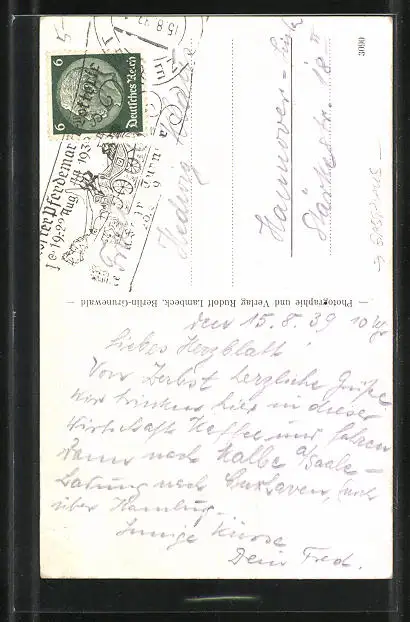 6 6
Deutsches Reich
Pferdemar
19-22 Aug. 193
15.8.
Hedwig
Hannover-Linden
Stärkestr. 18 II
3090
— Photographie und Verlag Rudolf Lambeck, Berlin-Grunewald —
den 15.8.39 10 Uhr
Liebes Herzblatt!
Von Zerbst herzliche Grüße
wir trinken hier in dieser
Wirtschaft Kaffee und fahren
dann nach Kalbe a/Saale –
Ladung nach Cuxhaven,
über Hamburg.
Innige Küsse
Dein Fred.